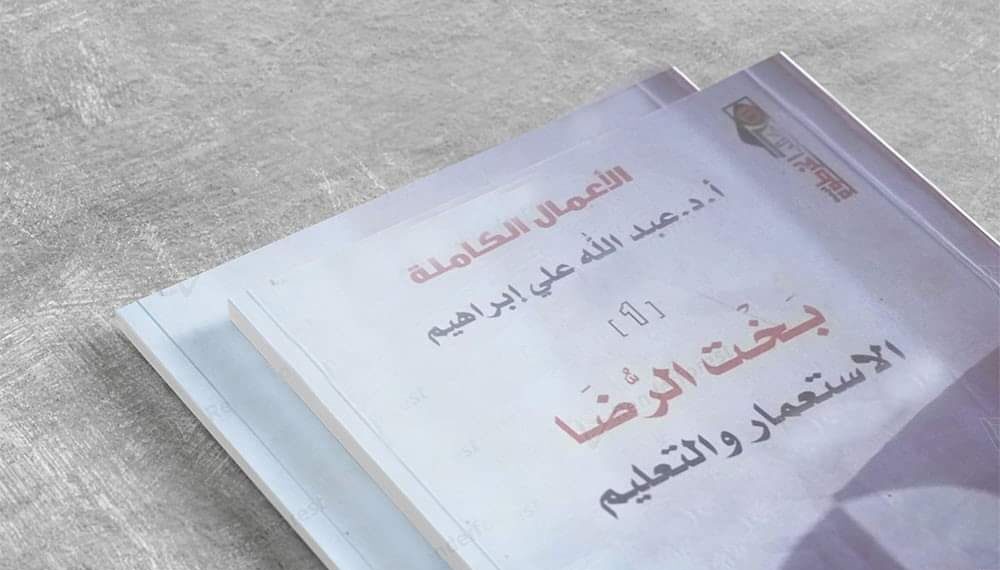 الأعمال الكاملة
أ.د. عبد الله علي إبراهيم
[1]
بَخْت الرُّضَا
الاستعمار والتعليم